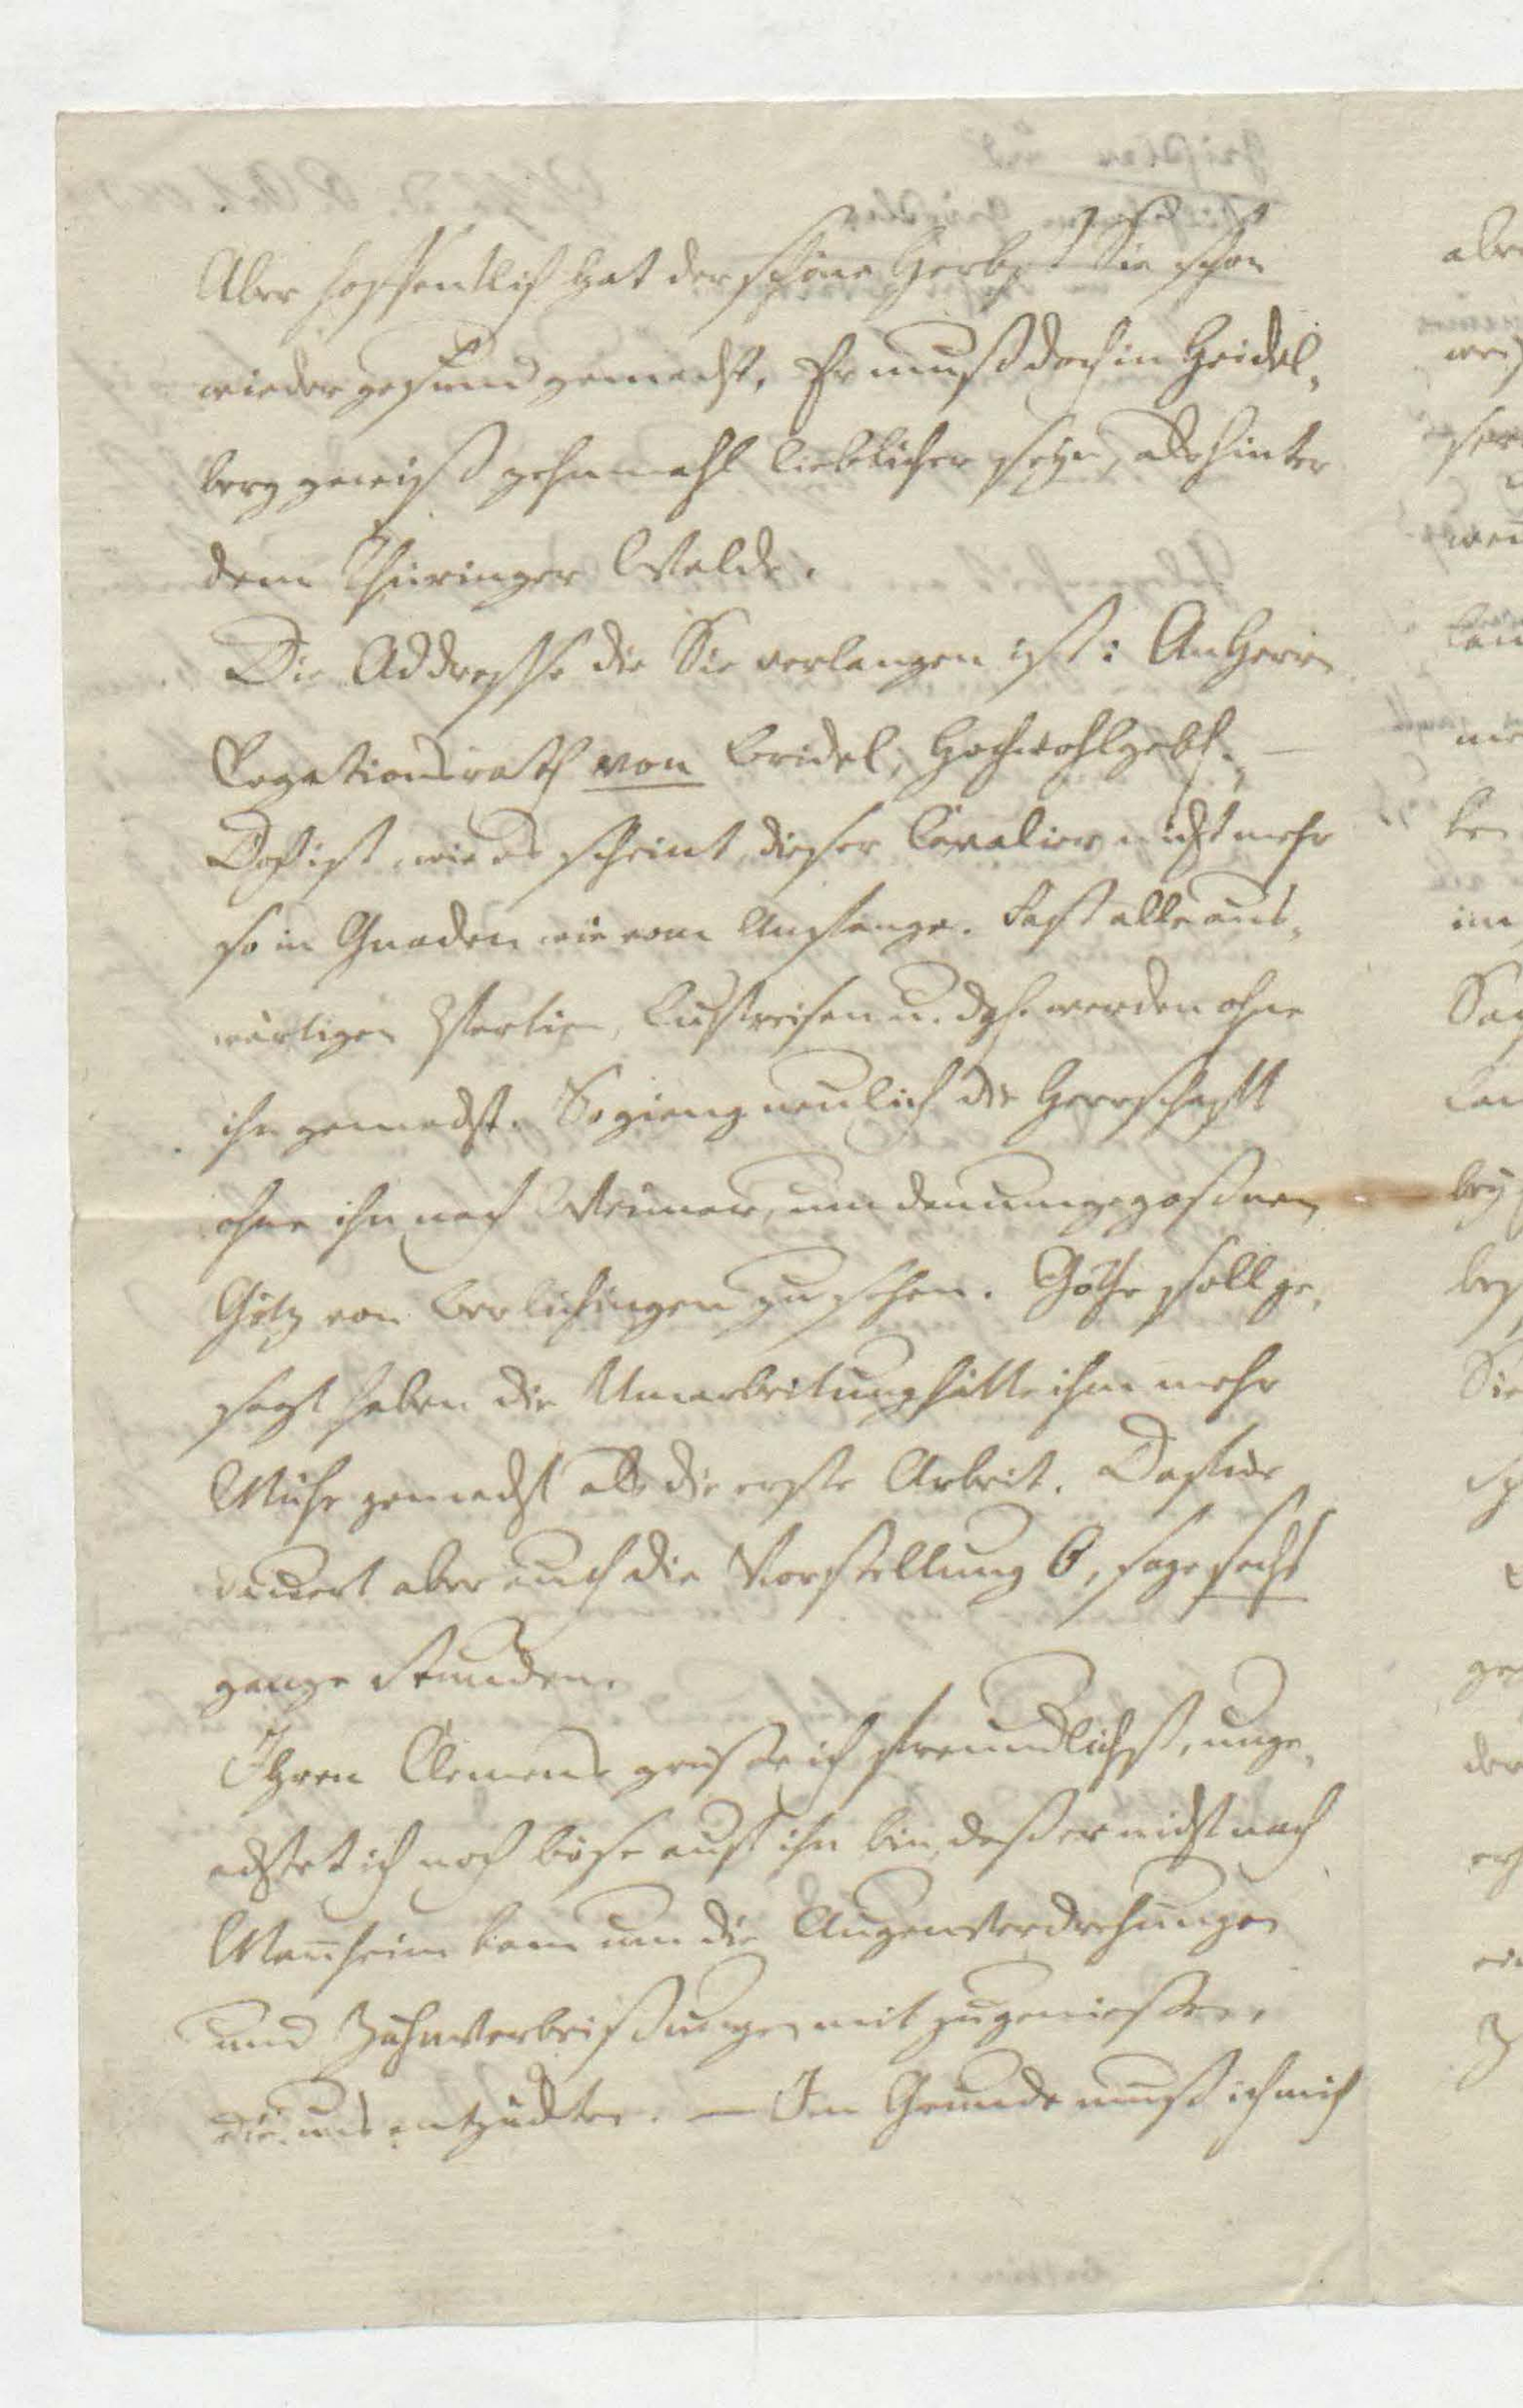 Aber hoffentlich hat der schöne Herbst Sie schon
wieder gesund gemacht. Er muß doch in Heidel-
berg gewiß zehnmahl lieblicher seyn, als hinter
dem Thüringer Walde.
Die Addresse die Sie verlangen ist: An Herrn
Legationsrath von Bridel, Hochwohlgeb. —
Doch ist, wie es scheint, dieser Cavalier nicht mehr
so in Gnaden wie vom Anfange. Fast alle aus-
wärtigen Partien, Lustreisen u. dgl. werden ohne
ihn gemacht. So gieng neulich die Herrschafft
ohne ihn nach Weimar, um den umgegoßnen
Götz von Berlichingen zu sehen. Göthe soll ge-
sagt haben die Umarbeitung hätte ihm mehr
Mühe gemacht als die erste Arbeit. Dafür
dauert aber auch die Vorstellung 6, sage sechs
ganze Stunden.
Ihren Clemens grüße ich freundlichst, unge-
achtet ich noch böse auf ihn bin, daß er nicht nach
Manheim kam um die Augenverdrehungen
und Zahnverbeißungen mit zu genießen,
die uns entzückten. — Im Grunde muß ich mich